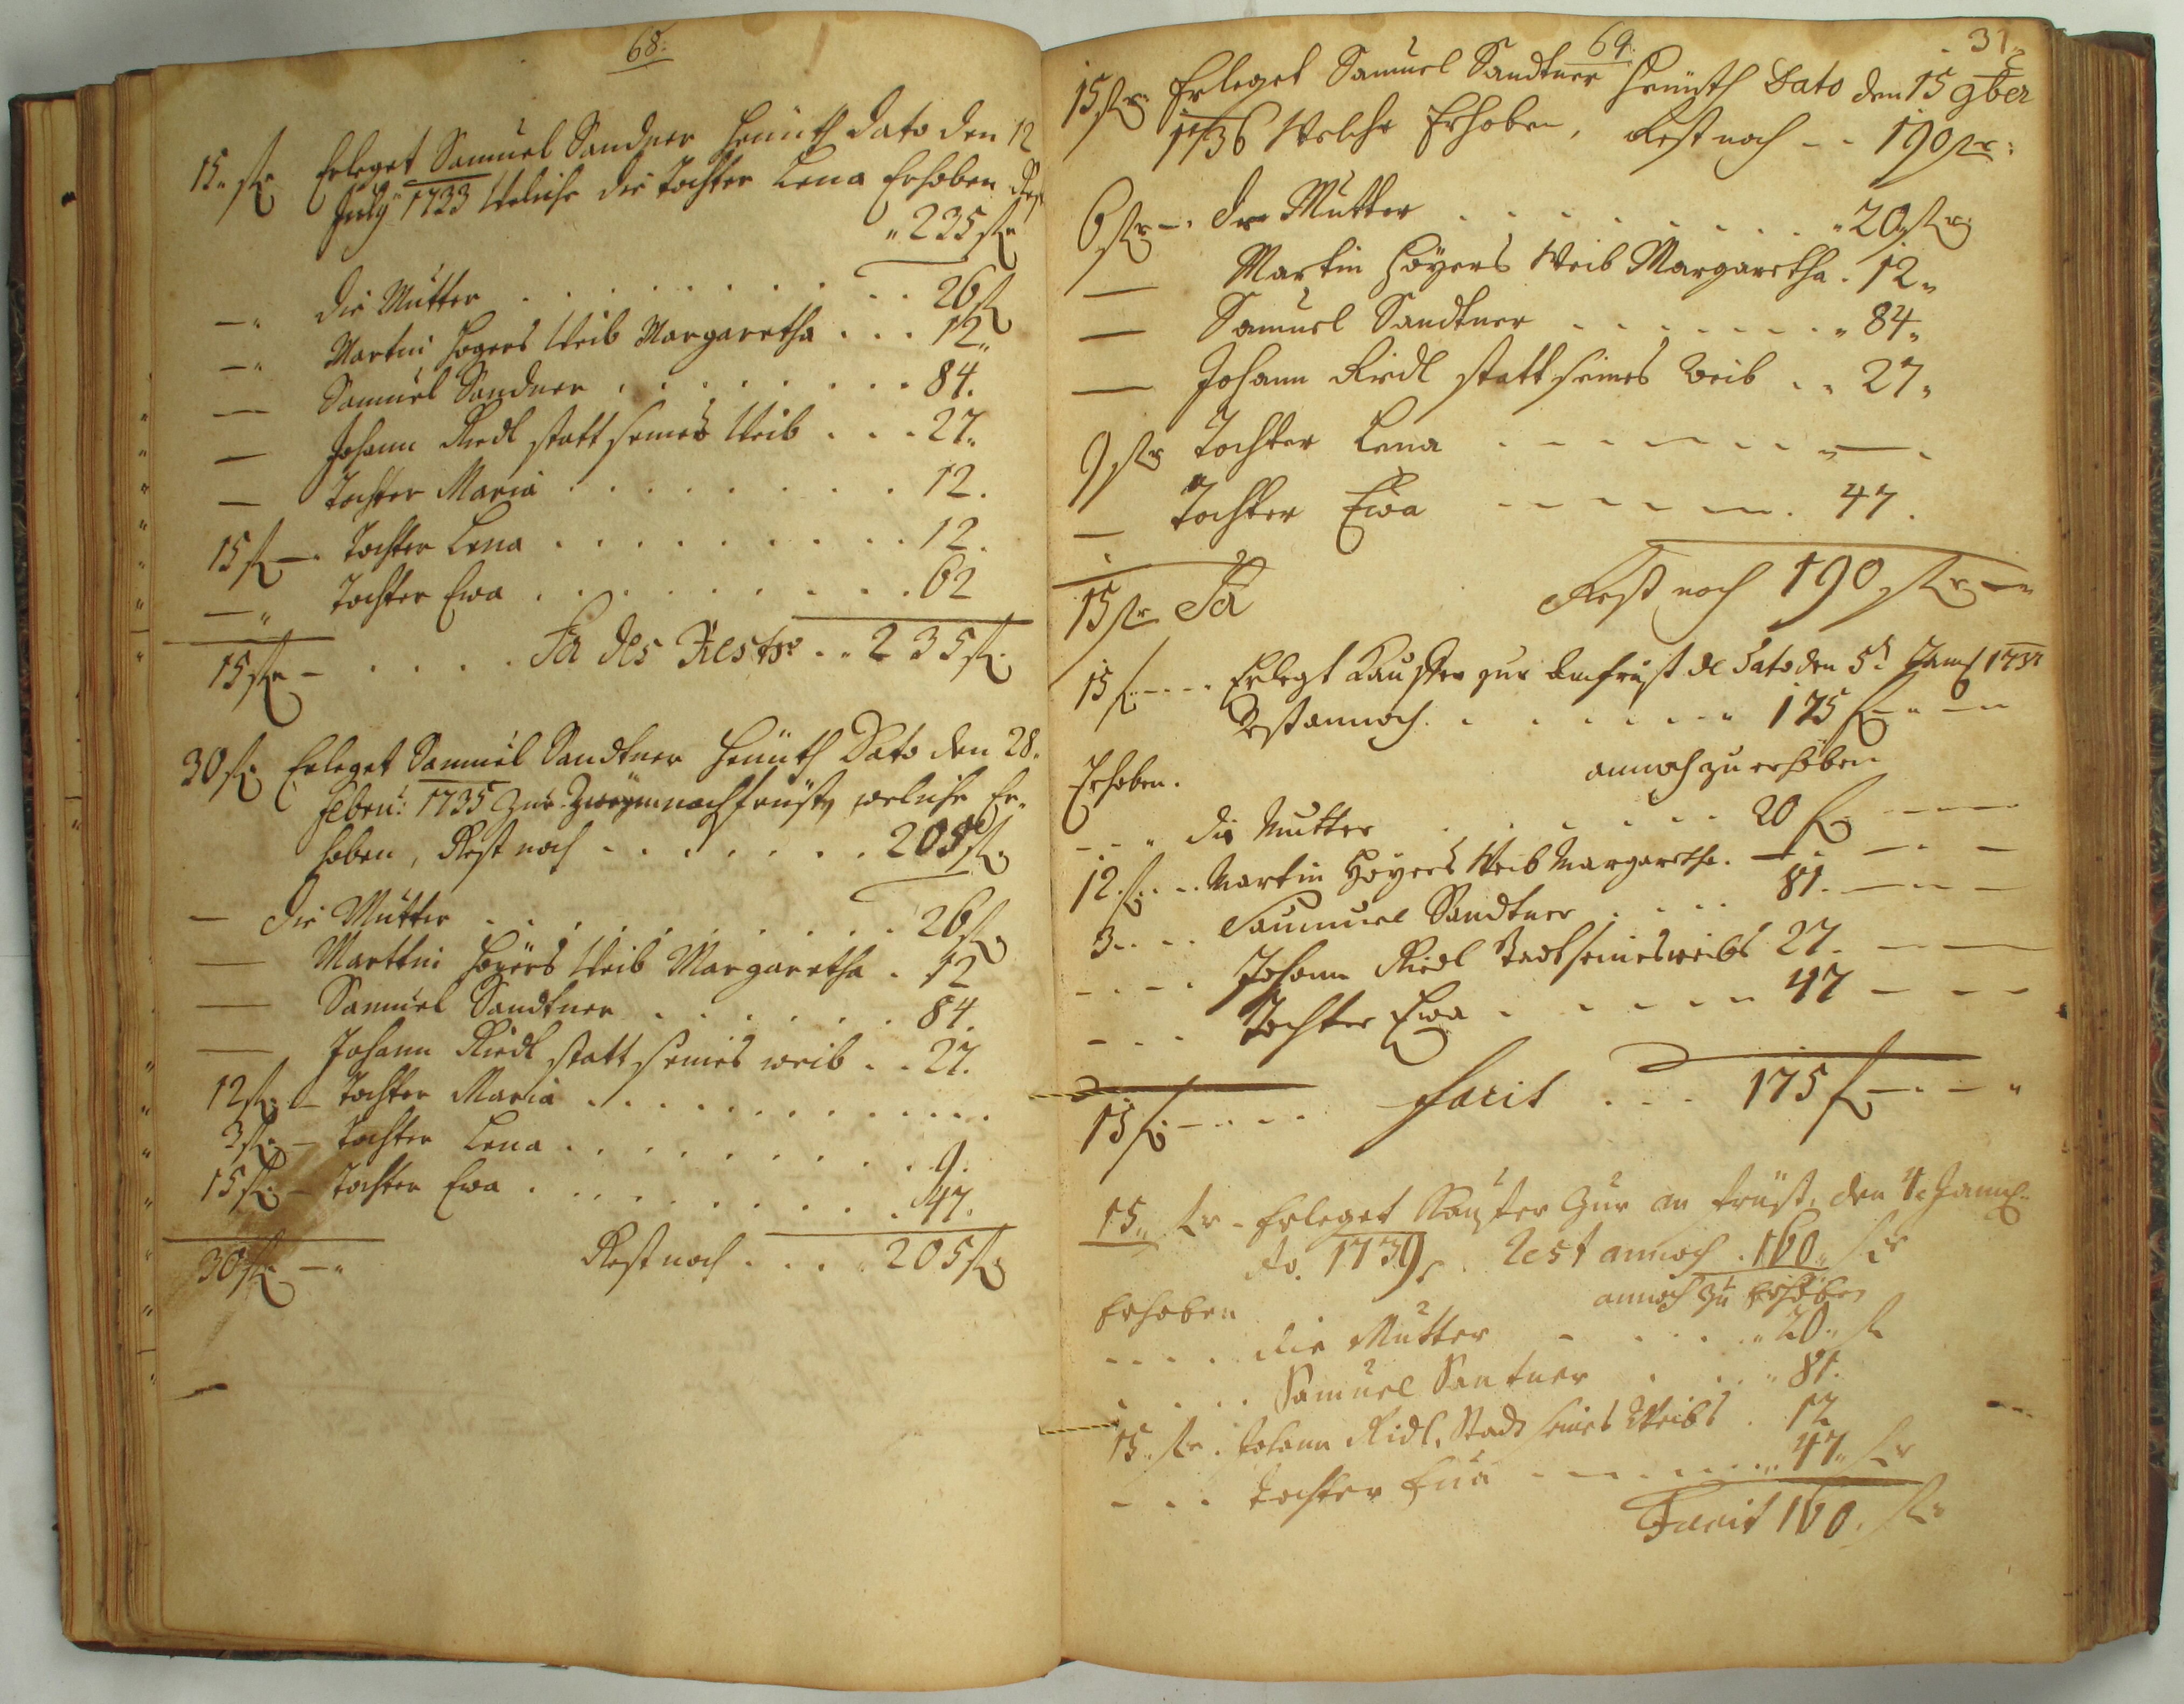 68.
15. fl. Erleget Samuel Sandner heuth dato den 12
July 1733 Welche die Tochter Lena Erhoben Rest
" 235 fl.
—" die Mutter . . . . . . . . 26 fl.
—" Martin Hoyers Weib Margaretha . . . 12"
— Samuel Sandner . . . . . . . . 84.
— Johann Riedl statt seines Weib . . . 27"
— Tochter Maria . . . . . . . . 12.
15 fl—. Tochter Lena . . . . . . . . . 12.
—" Tochter Ewa . . . . . . . . . 62
15 fl — . . . . Sa des Rests . . 235 fl.
30 fl. Erleget Samuel Sandtner heuth Dato den 28.
Febru: 1735 zur nachfrüst, welche Er-
hoben, Rest noch . . . . . . . 205 fl.
— die Mutter . . . . . . . . . 26 fl.
— Marttin Hoyers Weib Margaretha . 12
— Samuel Sandtner . . . . . . 84.
— Johann Riedl statt seines weib . . 27.
12 fl. — Tochter Maria . . . . . . . . . . .
3 fl. — Tochter Lena . . . . . . . . . . 9.
15 fl. — Tochter Ewa . . . . . . . . . 47.
30 fl —" Rest noch . . . . 205 fl.
69. 31.
15 fl. Erleget Samuel Sandtner heuth Dato den 15 9ber
1736 Welche Erhoben, Rest noch - - 190 fl:
6 fl —. der Mutter . . . . . . . . . " 20 fl.
— Martin Hoyers Weib Margaretha . 12"
— Samuel Sandtner . . . . . . . . " 84"
— Johann Riedl statt seines Weib . . 27"
9 fl Tochter Lena - - - - - - - " — .
— Tochter Ewa - - - - - - . 47.
15 fl Sa Rest noch 190 fl —"
15 f. - - - . Erlegt Kauffer zur frist de Dato den 5t
Restannoch . . . . . . . " 175 f — " —
Erhoben. annoch zu erhoben
- - " die Mutter . . . . . . . 20 f. — —
12. f. . - . Martin Hoyers Weib Margaretha . — . — . —
3. - . . Sammuel Sandtner . . . . 81. — - —
- - - . Johann Riedl Stadt seines weibs 27. — —
- - . . Tochter Ewa . . . . . - 47 — — —
15 f. - . . . facit . . . 175 f — . — "
15" fl - Erleget Kauffer Zur an früst, den 4.
Ao. 1739, . Rest annoch . 160" fl
Erhoben annoch zu Erhoben
- - . . die Mutter - . . . . " 20" fl
. . . . Samuel Santner . . . " 81.
15. fl . Johann Ridl, Stadt seines Weibs . 12
- . . Tochter Eua - - - . . . " 47" fl
Facit 160. fl